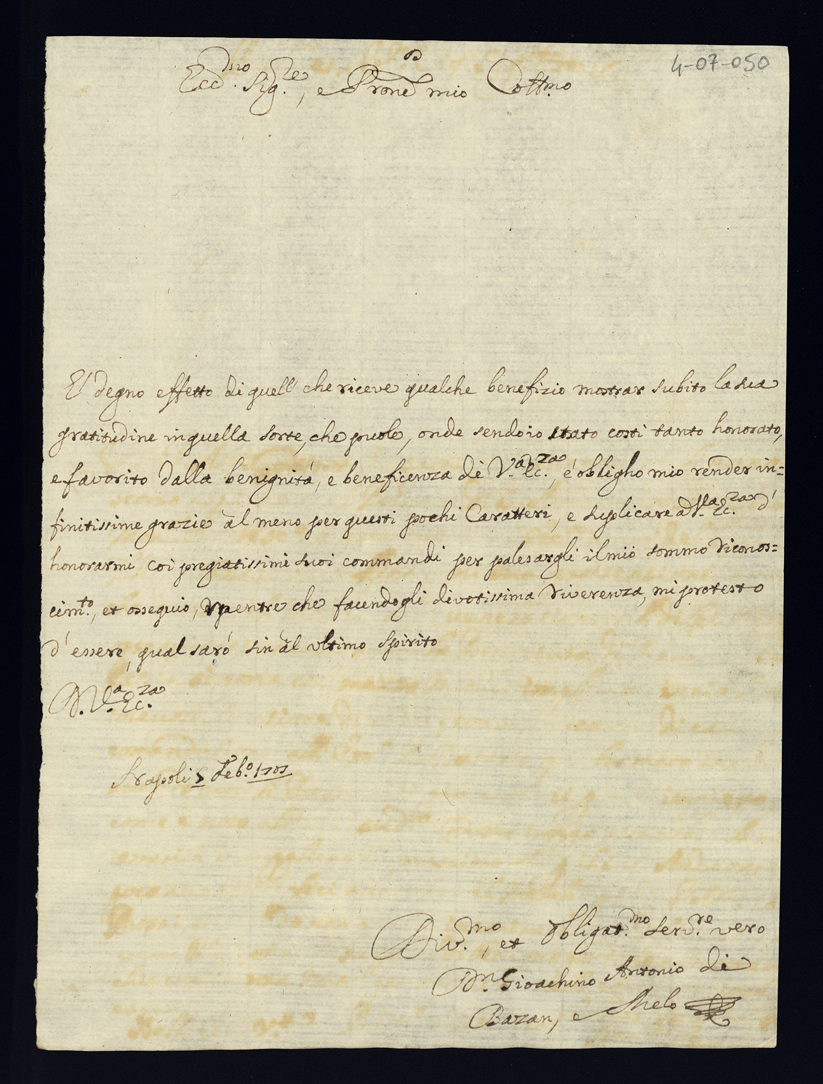 4-07-050
Ecc.mo Sig.re, e Prone mio Coll.mo
E' degno effetto di quell' che riceve qualche benefizio mostrar subito la sua
gratitudine in quella sorte, che puole, onde sendo io stato costi tanto honorato,
e favorito dalla benignitá, e beneficenza dè V.a Ec.za, é obligho mio render in=
finitissime grazie àl meno per questi pochi Caratteri, e suplicare a V.a Ec.za d'
honorarmi coi pregiatissimi suoi commandi per palesargli il mio sommo riconos=
cim.to, et osseguio, mentre che facendogli divotissima riverenza, mi protesto
d' essere, qual saró sin àl ultimo spirito
D. V.a Ec.za
Napoli Feb.o 1707
Div.mo, et obligat.mo serv.re vero
Dn. Gioachino Antonio di
Bazan, e Melo